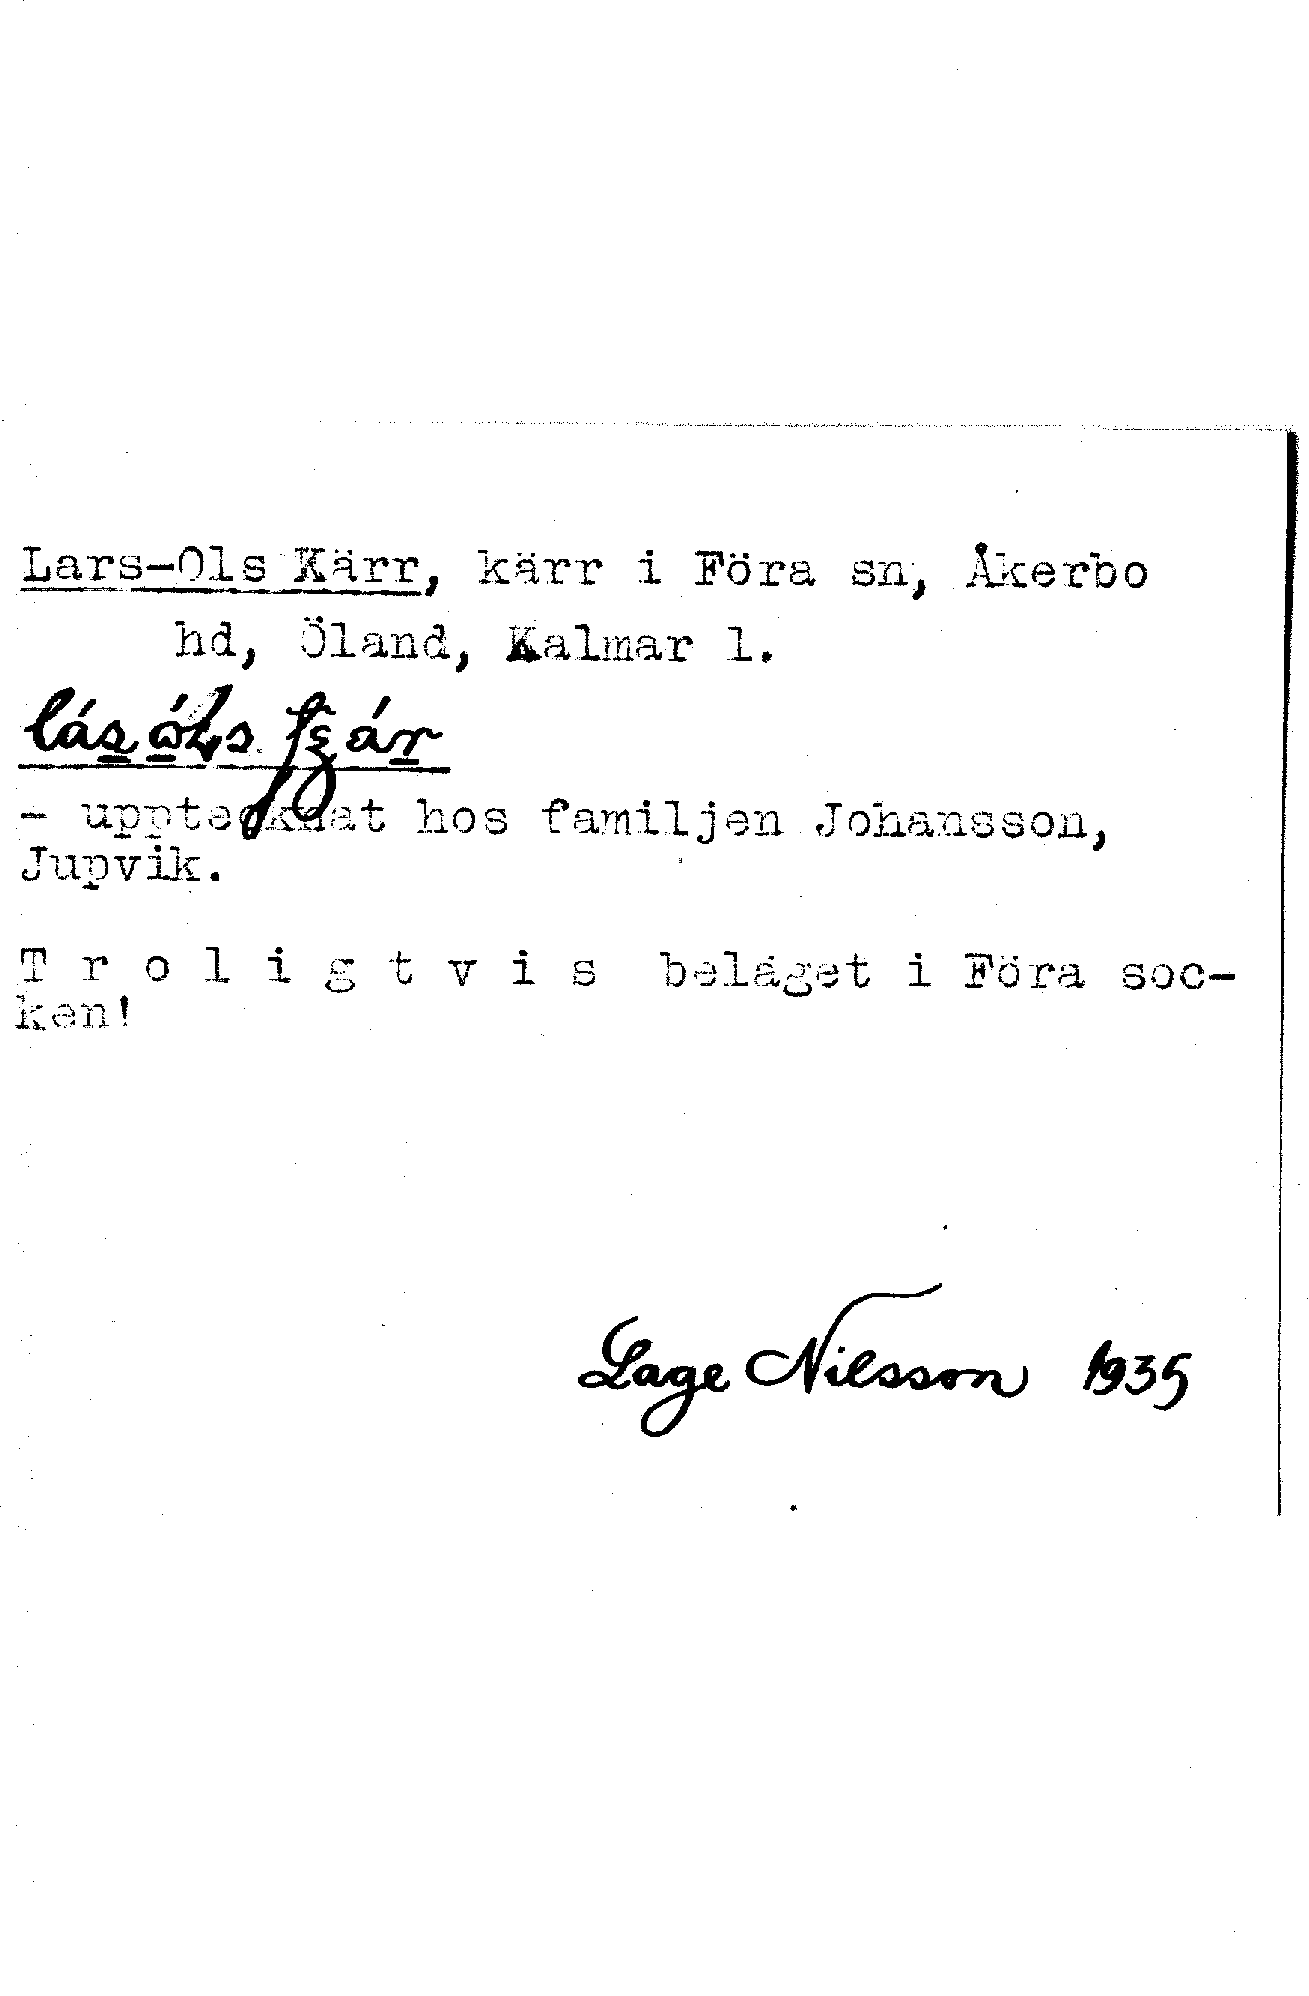 Lars-Ols Kärr, kärr i Föra sn, Åkerbo
hd, Öland, Kalmar l.
- upptecknat hos familjen Johansson,
Jupvik.
T r o l i g t v i s beläget i Föra soc-
ken!
Lage Nilsson 1935